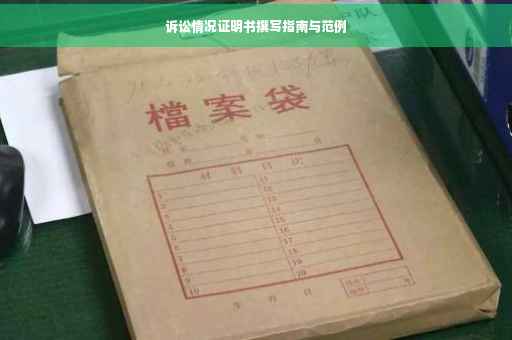 诉讼情况证明书撰写指南与范例
檔案袋
材料目次
1 11
2 12
3 13
4 14
5 15
6 16
7 17
8 18
9 19
10 20
年 月 日